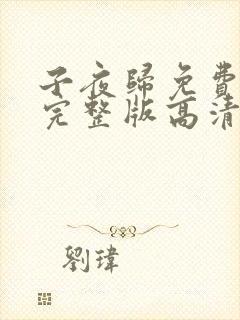 子夜歸免費
完整版高清
劉瑋